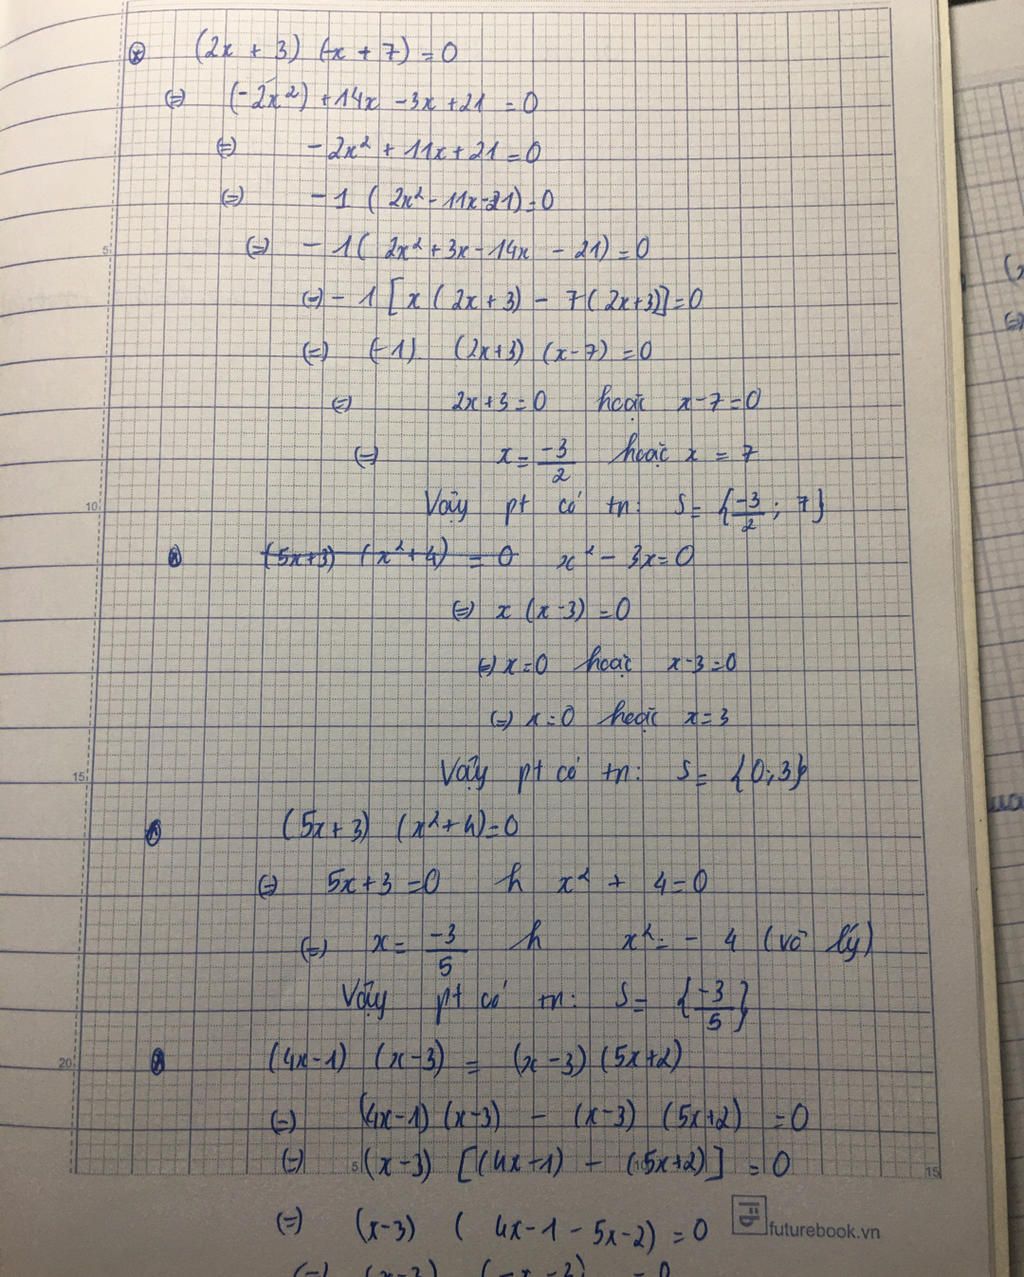 (2x + 3) (-x + 7) = 0
(=) (-2x²) + 14x - 3x + 21 = 0
(=) - 2x² + 11x + 21 = 0
(=) - 1 ( 2x² - 11x - 21) = 0
5
(=) - 1 ( 2x² + 3x - 14x - 21) = 0
(=) - 1 [ x ( 2x + 3) - 7 ( 2x + 3)] = 0
(=) (-1) (2x+3) (x-7) = 0
(=) 2x + 3 = 0 hoặc x - 7 = 0
(=) x = -3/2 hoặc x = 7
10
Vậy pt có tn: S = {-3/2 ; 7}
(5x+3) (x²+4) = 0 x² - 3x = 0
(=) x (x-3) = 0
(=) x = 0 hoặc x - 3 = 0
(=) x = 0 hoặc x = 3
15
Vậy pt có tn: S = {0; 3}
(5x + 3) (x² + 4) = 0
(=) 5x + 3 = 0 h x² + 4 = 0
(=) x = -3/5 h x² = - 4 (vô lý)
Vậy pt có tn: S = {-3/5}
20
(4x-1) (x-3) = (x-3) (5x+2)
(=) (4x-1) (x-3) - (x-3) (5x+2) = 0
(=) (x-3) [(4x-1) - (5x+2)] = 0
5 10 15
(=) (x-3) ( 4x - 1 - 5x - 2) = 0
futurebook.vn
(=) (x-3) (-x-3) = 0